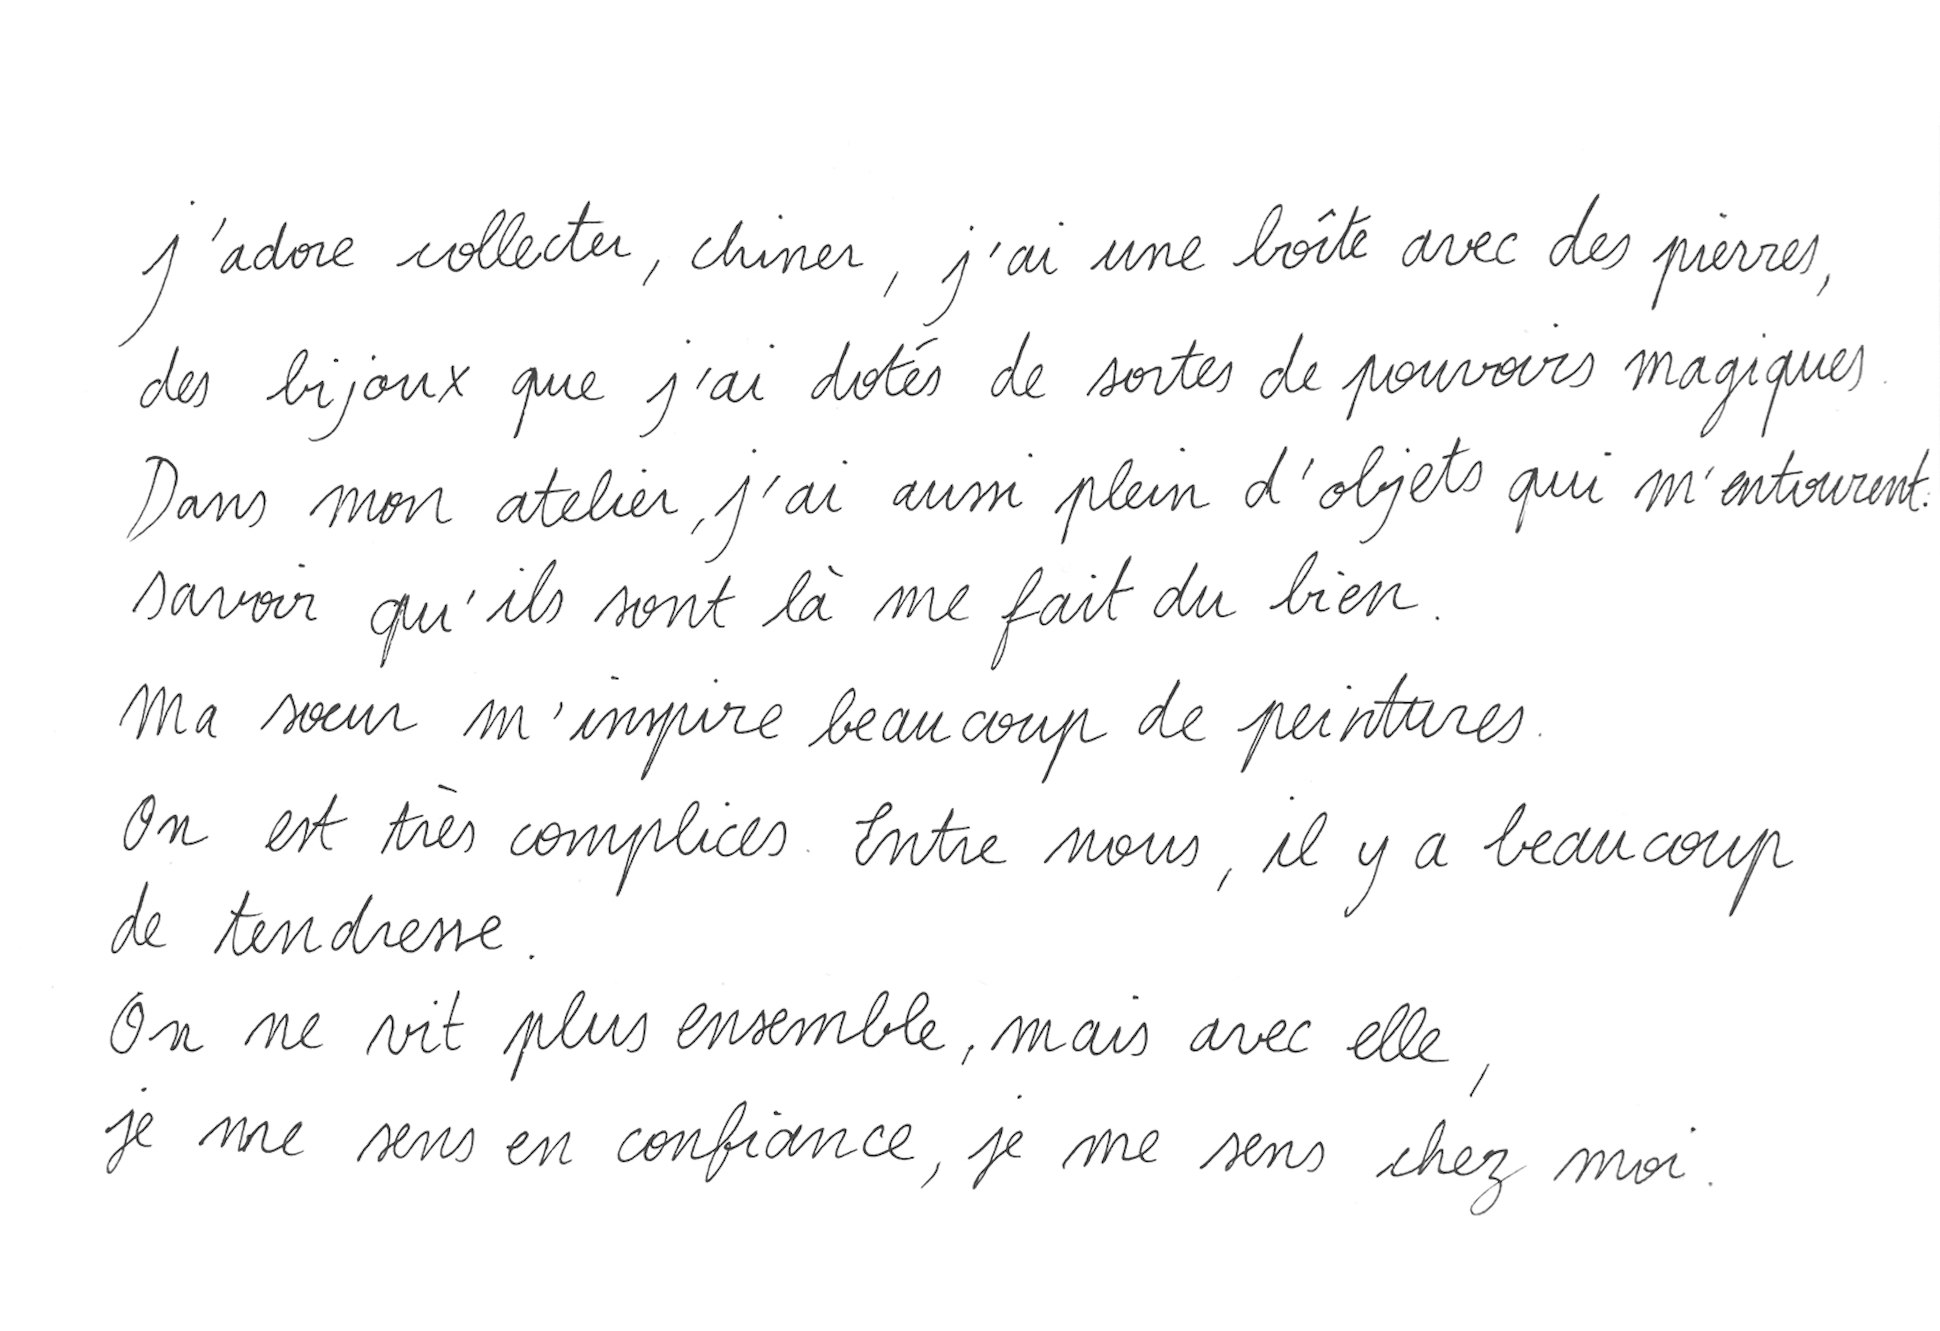 j'adore collecter, chiner, j'ai une boîte avec des pierres,
des bijoux que j'ai dotés de sortes de pouvoirs magiques.
Dans mon atelier, j'ai aussi plein d'objets qui m'entourent.
savoir qu'ils sont là me fait du bien.
Ma sœur m'inspire beaucoup de peintures.
On est très complices. Entre nous, il y a beaucoup
de tendresse.
On ne vit plus ensemble, mais avec elle,
je me sens en confiance, je me sens chez moi.